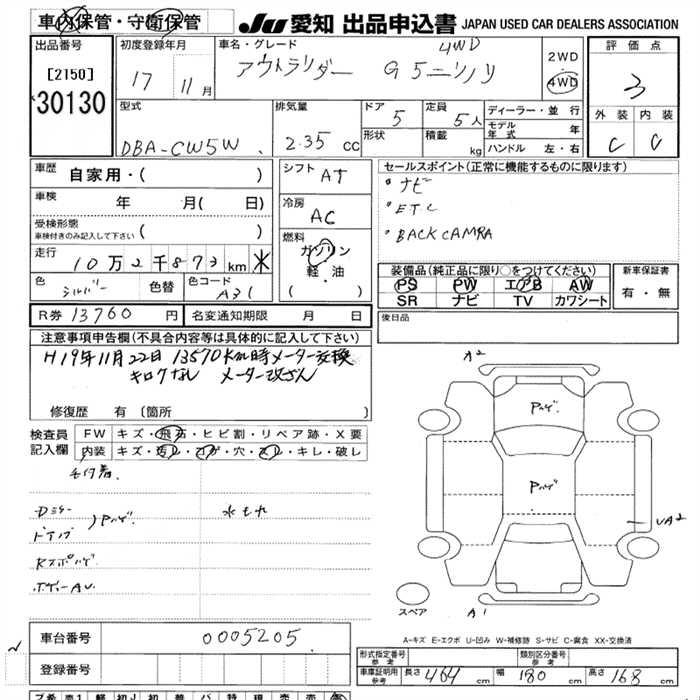 車内保管・守衛保管
JU 愛知 出品申込書 JAPAN USED CAR DEALERS ASSOCIATION
出品番号
[2150]
30130
初度登録年月
17 11 月
車名・グレード
4WD
アウトランダー G 5ニンノリ
2WD
4WD
評価点
3
外装 内装
C C
型式
DBA-CW5W
排気量
2.35 CC
ドア
5
形状
定員
5人
積載
kg
ディーラー・並行
モデル年式 年
ハンドル 左・右
車歴 自家用・( )
車検 年 月( 日)
受検形態
車検付きのみ記入して下さい ( )
走行 10万2千873 km *
色 シルバー 色替
色コード A31
シフト AT
冷房 AC
燃料
ガソリン
・軽・油
( )
セールスポイント(正常に機能するものに限ります)
ナビ
ETC
BACK CAMRA
装備品(純正品に限り○をつけてください)
PS PW エアB AW
SR ナビ TV カワシート
新車保証書
有・無
R券 13760 円
名変通知期限 月 日
後日品
注意事項申告欄(不具合内容等は具体的に記入して下さい)
H19年11月22日 13570Km時メーター交換
キロクなし メーター改ざん
修復歴 有 [箇所 ]
検査員記入欄
FW キズ・飛石・ヒビ割・リペア跡・X要
内装 キズ・汚レ・コゲ・穴・スレ・キレ・破レ
毛付着
Dミラー
ドアノブ )Pハゲ
水もれ
Rスポハゲ
ボディーAU
A2
Pハゲ
Pハゲ
UA2
スペア
A1
A-キズ E-エクボ U-凹み W-補修跡 S-サビ C-腐食 XX-交換済
車台番号 0005205
登録番号
型式指定番号 参考
類別区分番号 参考
車庫証明用 参考
長さ 464 cm 幅 180 cm 高さ 168 cm